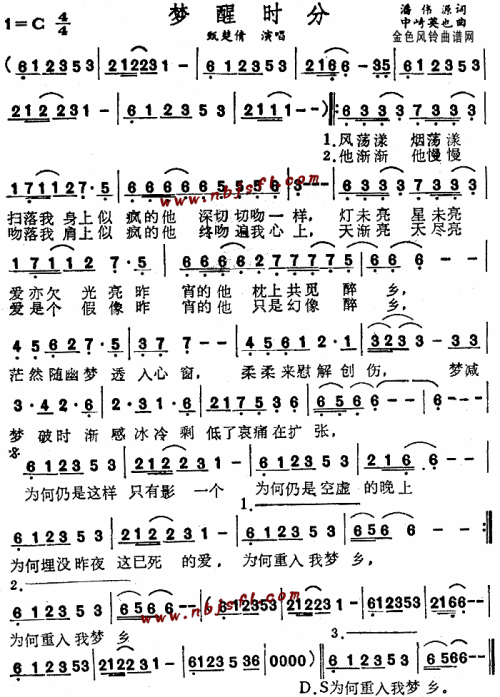 梦 醒 时 分
1=C 4/4
甄楚倩 演唱
潘伟源词
中崎英也曲
金色风铃曲谱网
( 6 1 2 3 5 3 | 21223 1- | 6 1 2 3 5 3 | 2166 -35 |
21 2 23 1- | 6 1 2 3 5 3 | 2 1 1 1 - -) ‖: 6 3 3 3 7 3 3 3 |
1.风荡漾 烟荡漾
2.他渐渐 他慢慢
1 7 1 1 2 7·5 | 6 6 6 6 6 5 5 5 6 | 3 - - - | 6 3 3 3 7 3 3 3 |
扫落我 身上似 疯的他 深切切吻一样, 灯未亮 星未亮
吻落我 肩上似 疯的他 终吻遍我心上, 天渐亮 天尽亮
1 7 1 1 2 7·5 | 6 6 6 6 2 7 6 6 7 | 6 - - - |
爱亦欠 光亮昨 宵的他 枕上共觅 醉 乡,
爱是个 假像昨 宵的他 只是幻像 醉 乡,
4 5 6 2 7 5 3 1 | 4 5 6 1 2·1 | 3 2 3 3 - 3 3 |
茫然随幽梦透入心窗, 柔柔来慰解创伤, 梦减
3·4 2·6 | 2·3 1·6 | 2 1 7 5 3 6 | 6 5 6 6 - | 6 - - - |
梦 破时 渐 感冰冷 剩 低了哀痛在扩 张,
6 1 2 3 5 3 | 2 1 2 2 3 1 | 6 1 2 3 5 3 | 2 1 6 - |
为何仍是这样 只有影 一个 为何仍是空虚 的晚上
1.
6 1 2 3 5 3 | 2 1 2 2 3 1 | 6 1 2 3 5 3 | 6 5 6 6 - :‖
为何埋没昨夜 这已死 的爱, 为何重入我梦 乡,
2.
6 1 2 3 5 3 | 6 5 6 6 - - | (6 1 2 3 5 3 | 21223 1- | 612353 | 2166-- |
为何重入我梦 乡
3.
6 1 2 3 5 3 | 21 22 3 1- | 6123 5 36 | 0000) | 6 1 2 3 5 3 | 6 5 66-- ‖
D.S为何重入我梦 乡。
www.nbjsfl.com
www.nbjsfl.com